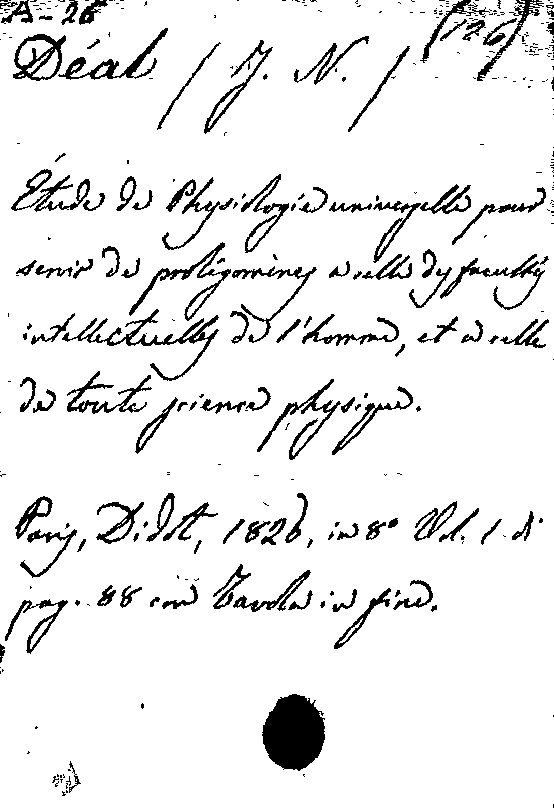 A-26
Déal (J. N.) (126)
Étude de Physiologie universelle pour
servir de prolégomènes a celle des facultés
intellectuelles de l'homme, et a celle
de toute science physique.
Paris, Didot, 1826, in 8° Vol. 1 di
pag. 88 con Tavola in fine.